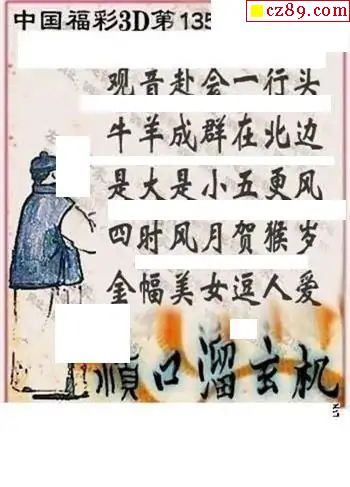 中国福彩3D第135
cz89.com
观音赴会一行头
牛羊成群在北边
是大是小五更风
四时风月贺猴岁
金幅美女逗人爱
顺口溜玄机